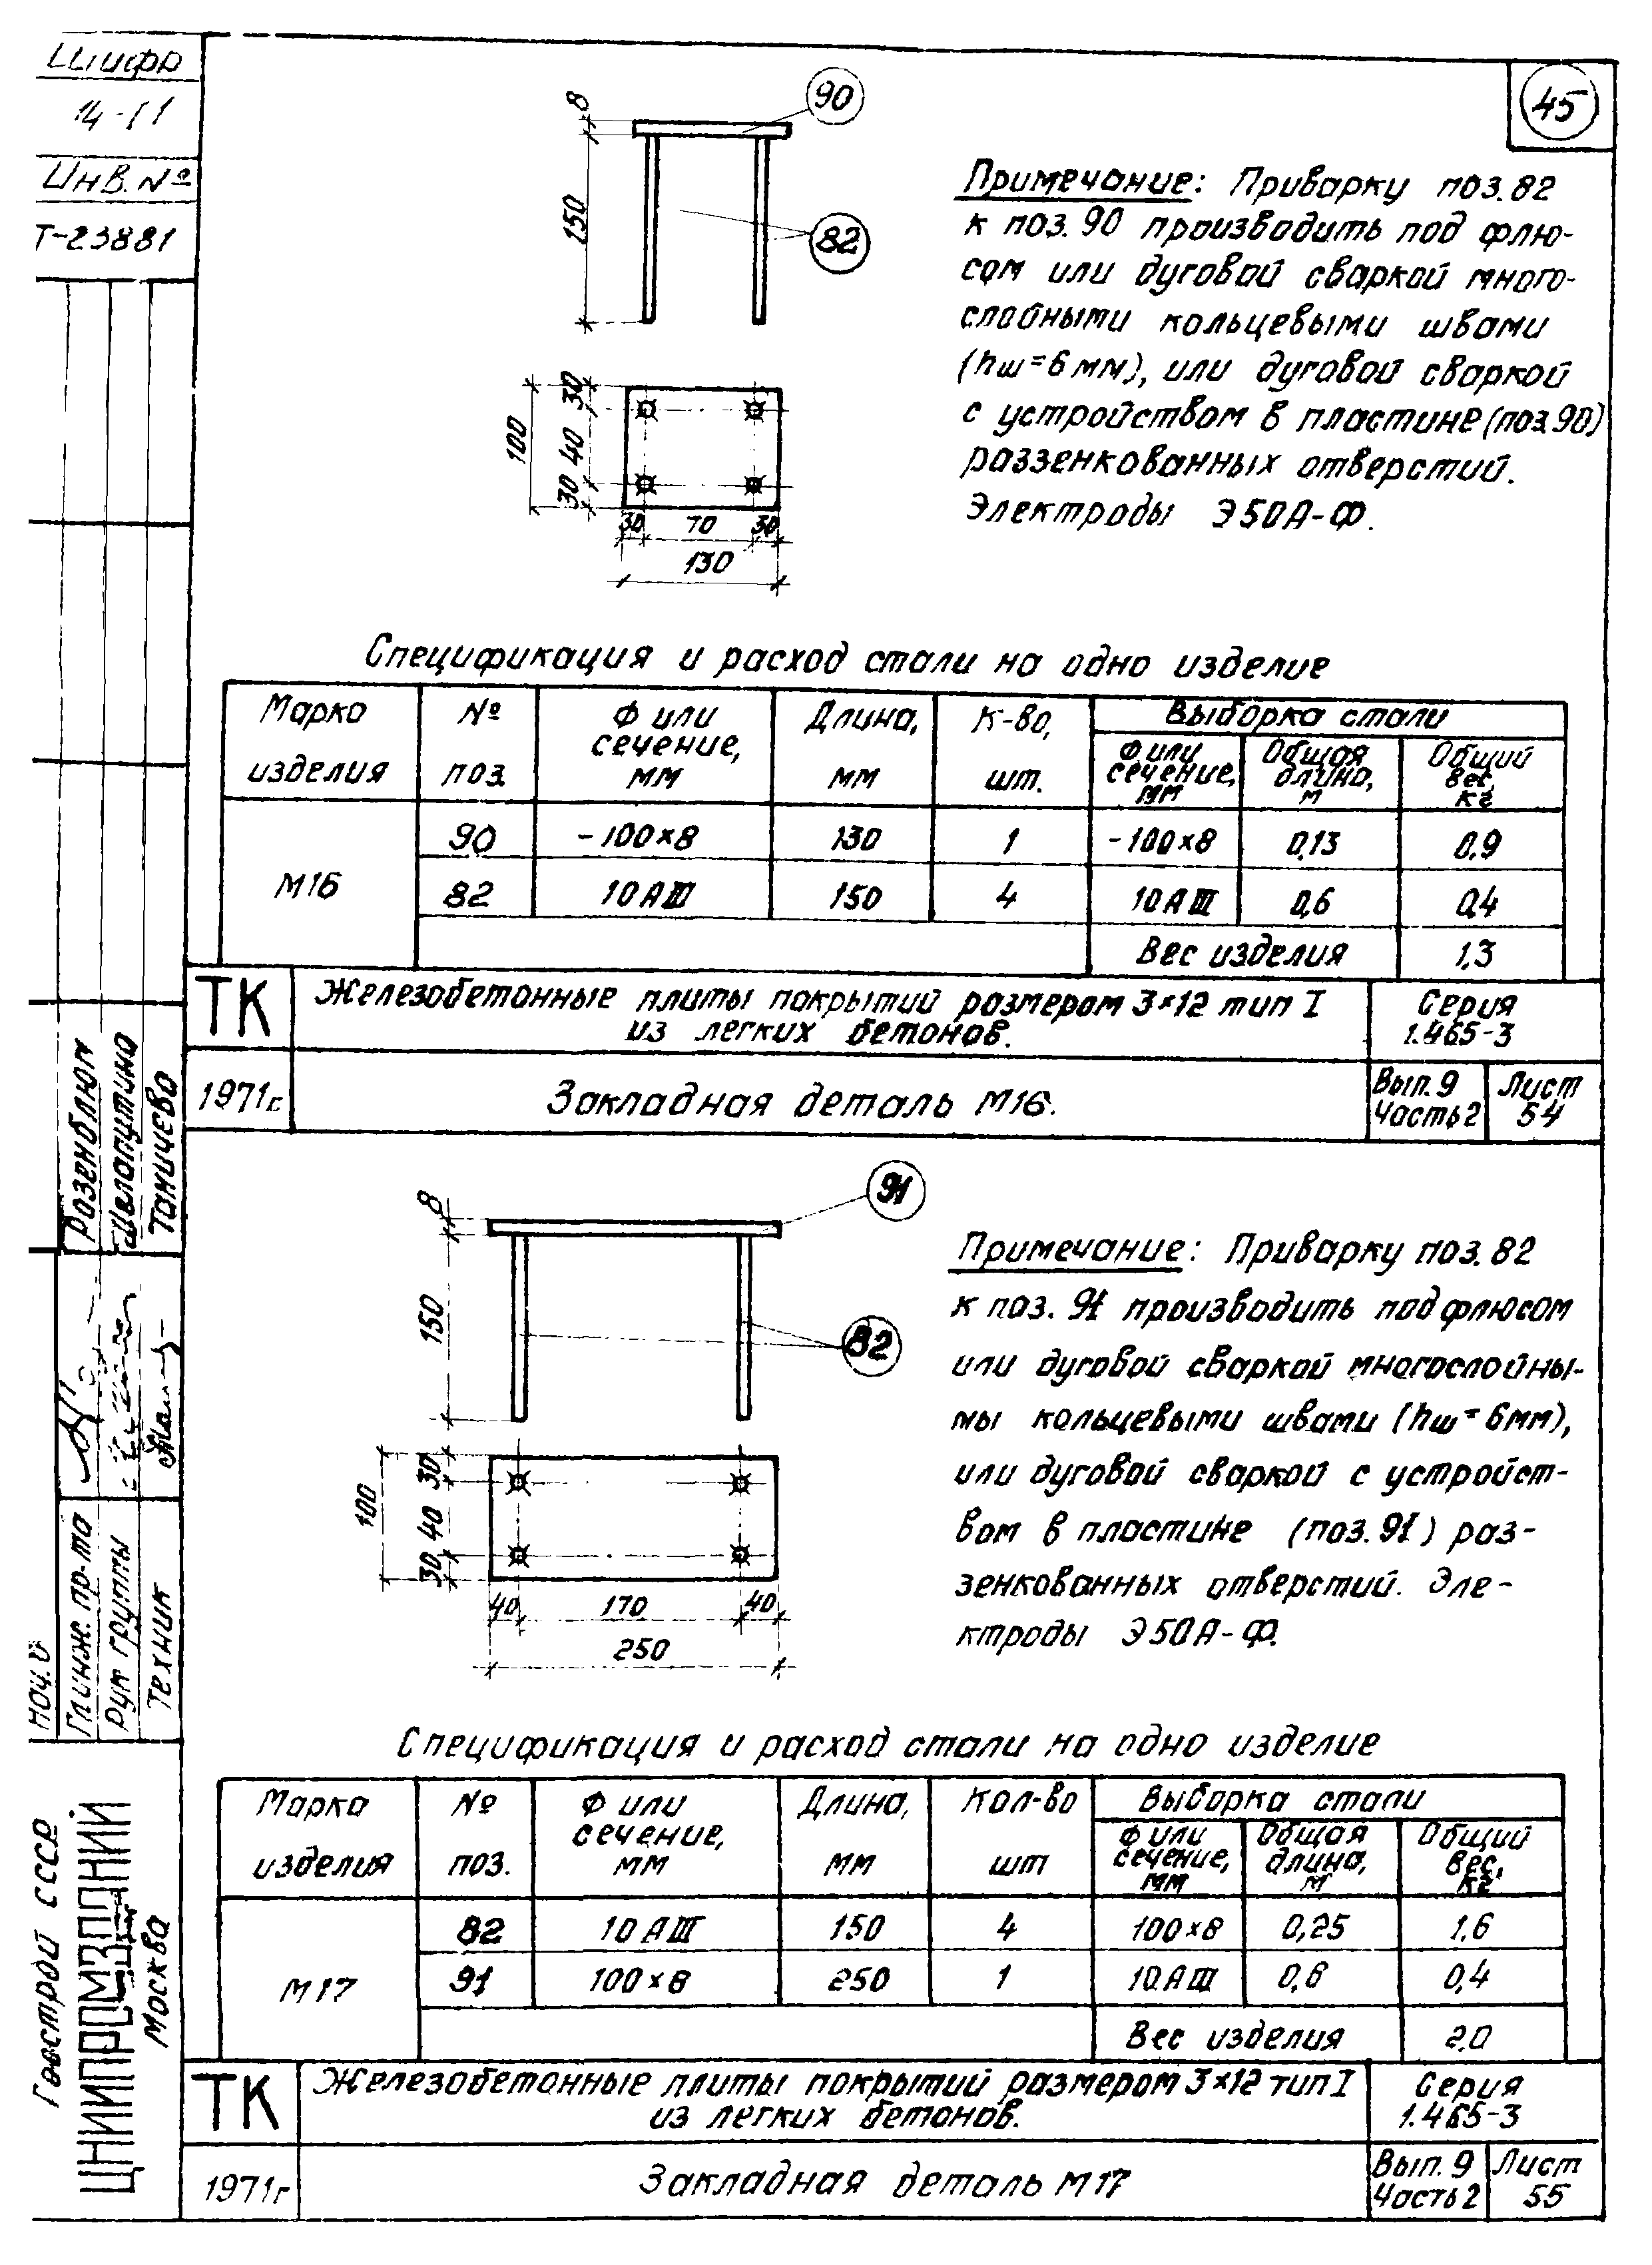 Шифр
14-11
Инв. №
Т-23881
45
90
8
150
82
100
30
40
30
30 70 30
130
Примечание: Приварку поз. 82
к поз. 90 производить под флю-
сом или дуговой сваркой много-
слойными кольцевыми швами
(hш=6мм), или дуговой сваркой
с устройством в пластине (поз.90)
раззенкованных отверстий.
Электроды Э50А-Ф.
Спецификация и расход стали на одно изделие
Марка изделия | № поз. | Ф или сечение, мм | Длина, мм | К-во, шт. | Выборка стали
Ф или сечение, мм | Общая длина, м | Общий вес, кг
М16 | 90 | -100×8 | 130 | 1 | -100×8 | 0,13 | 0,9
82 | 10АIII | 150 | 4 | 10АIII | 0,6 | 0,4
Вес изделия | 1,3
ТК
Железобетонные плиты покрытий размером 3×12 тип I
из легких бетонов.
Серия
1.465-3
1971г.
Закладная деталь М16.
Вып. 9
Часть 2
Лист
54
91
8
150
82
100
30
40
30
40 170 40
250
Примечание: Приварку поз. 82
к поз. 91 производить под флюсом
или дуговой сваркой многослойны-
мы кольцевыми швами (hш=6мм),
или дуговой сваркой с устройст-
вом в пластине (поз. 91) раз-
зенкованных отверстий. Эле-
ктроды Э50А-Ф.
Спецификация и расход стали на одно изделие
Марка изделия | № поз. | Ф или сечение, мм | Длина, мм | Кол-во шт | Выборка стали
Ф или сечение, мм | Общая длина, м | Общий вес, кг
М17 | 82 | 10АIII | 150 | 4 | 100×8 | 0,25 | 1,6
91 | 100×8 | 250 | 1 | 10АIII | 0,6 | 0,4
Вес изделия | 2,0
ТК
Железобетонные плиты покрытий размером 3×12 тип I
из легких бетонов.
Серия
1.465-3
1971г
Закладная деталь М17
Вып. 9
Часть 2
Лист
55
Розенблюм
Шелапутина
Таничева
Нач.
Гл инж. пр-та
Рук группы
Техник
Госстрой СССР
ЦНИИПРОМЗДАНИЙ
Москва